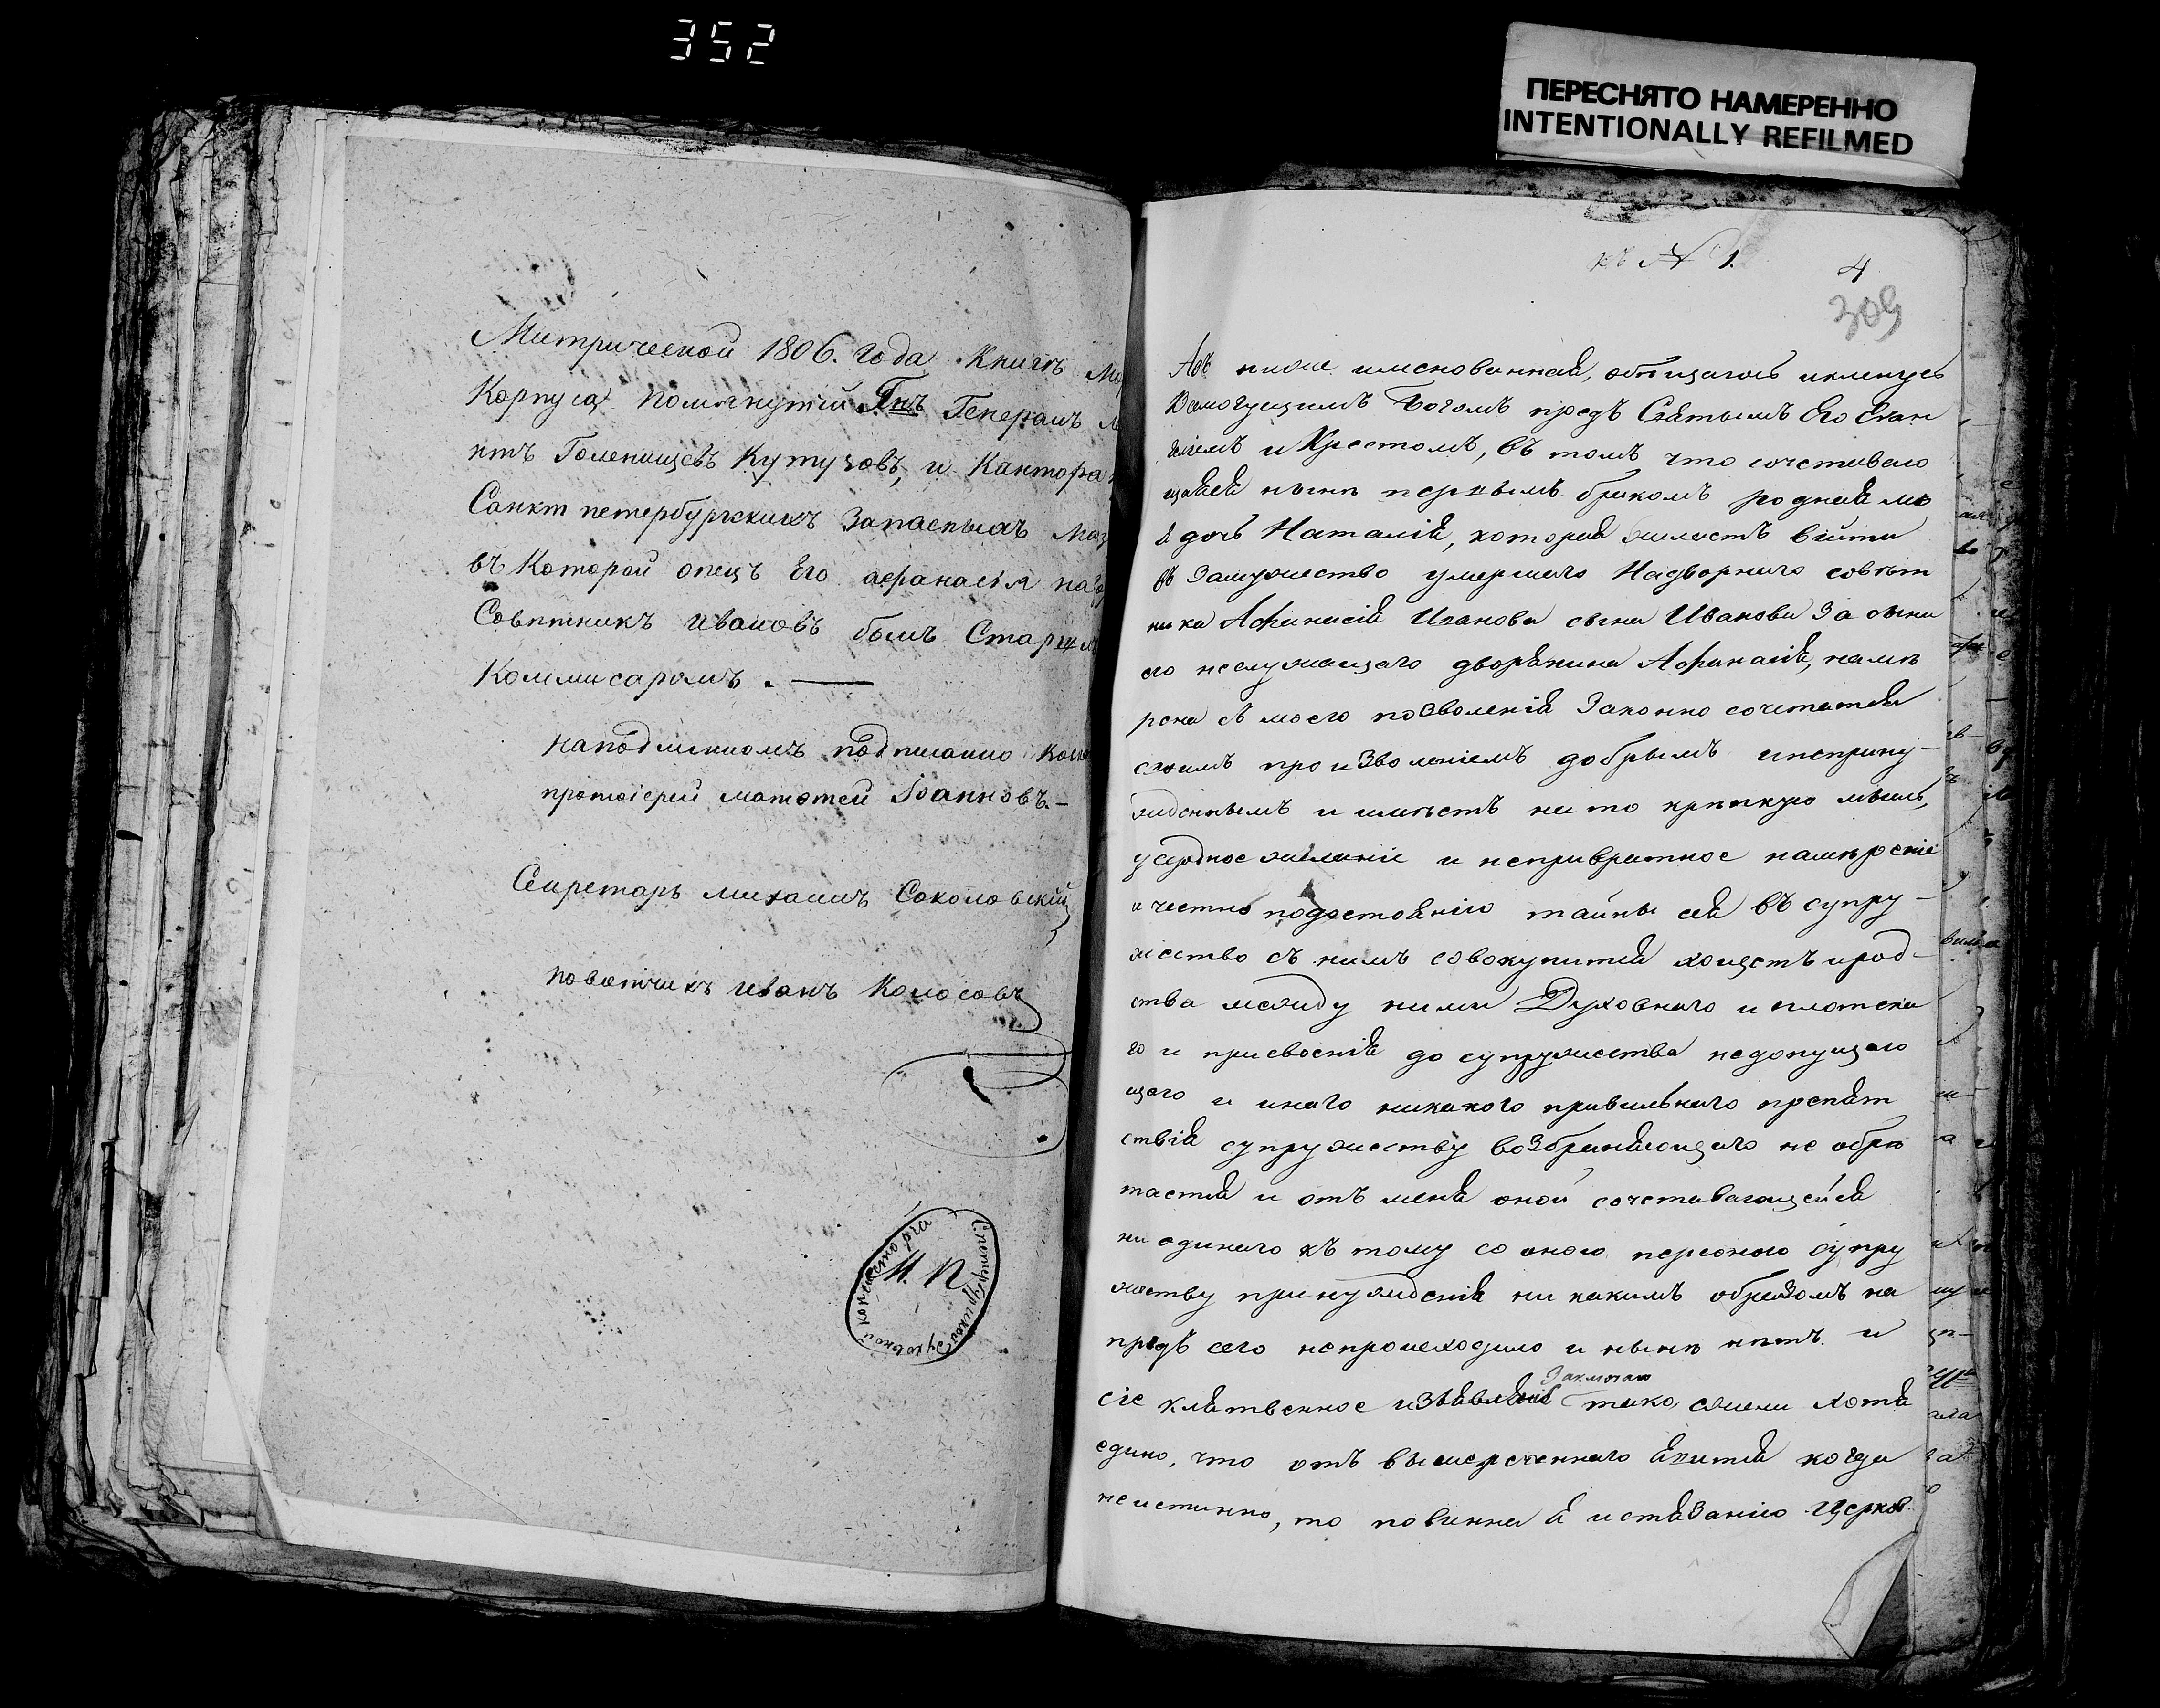 352
ПЕРЕСНЯТО НАМЕРЕННО
INTENTIONALLY REFILMED
Митрической 1806. года Книгѣ
Корпуса помянутый Гнъ Генералъ
нтъ Голенищевъ Кутузовъ, и Кантора
Санктпетербургскихъ Запасныхъ Маг
въ Которой опецъ Его афанасія на
Совѣтникъ Ивановъ былъ Старш
Коммисаромъ. —
наподлинномъ подписанно
протоіерей матѳей Іоанновъ. —
Секретарь михаилъ Соколовскій
повотчикъ иванъ Колосовъ
М. П.
С. петербургской духовной консисторіи
къ № 1.
4
309
Азъ ниже имянованная, обѣщаюсь и кленусь
Всемогущимъ Богомъ предъ Святымъ Его Еван
геліемъ и Крестомъ, въ томъ что сочетаваю
щаяся нынѣ первымъ бракомъ родная мо
я дочь Наталія, которая желаетъ війти
въ замужество умершаго Надворнаго совѣт
ника Афанасія Иванова сына Иванова за сына
его неслужащаго дворянина Афанасія, намѣ
рена съ моего позволенія Законно сочетатся
своимъ произволеніемъ добрымъ и неприну-
жденнымъ и имѣетъ на то крѣпкую мысль,
усердное желаніе и непривратное намѣреніе
и честно подостоянію тайны сея въ супру-
жество съ нимъ совокупится хощетъ и род-
ства между ними Духовнаго и плотска
го и присвоенія до супружества недопущаю
щаго и инаго никакого правильнаго препят
ствія супружеству возбраняющаго не обрѣ
тается и отъ меня оной сочетавающейся
ни единаго къ тому со оною персоною супру
жеству принужденія ни какимъ образомъ на
предъ сего непроисходило и нынѣ нѣтъ. и
сіе клятвенное изъявленіе Заключаю тако, ежели хотя
едино, что отъ вышереченнаго явится когда
неистинно, то повинна я истязанію Церков